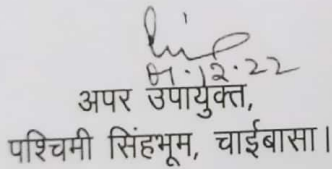 01.12.22
अपर उपायुक्त,
पश्चिमी सिंहभूम, चाईबासा।